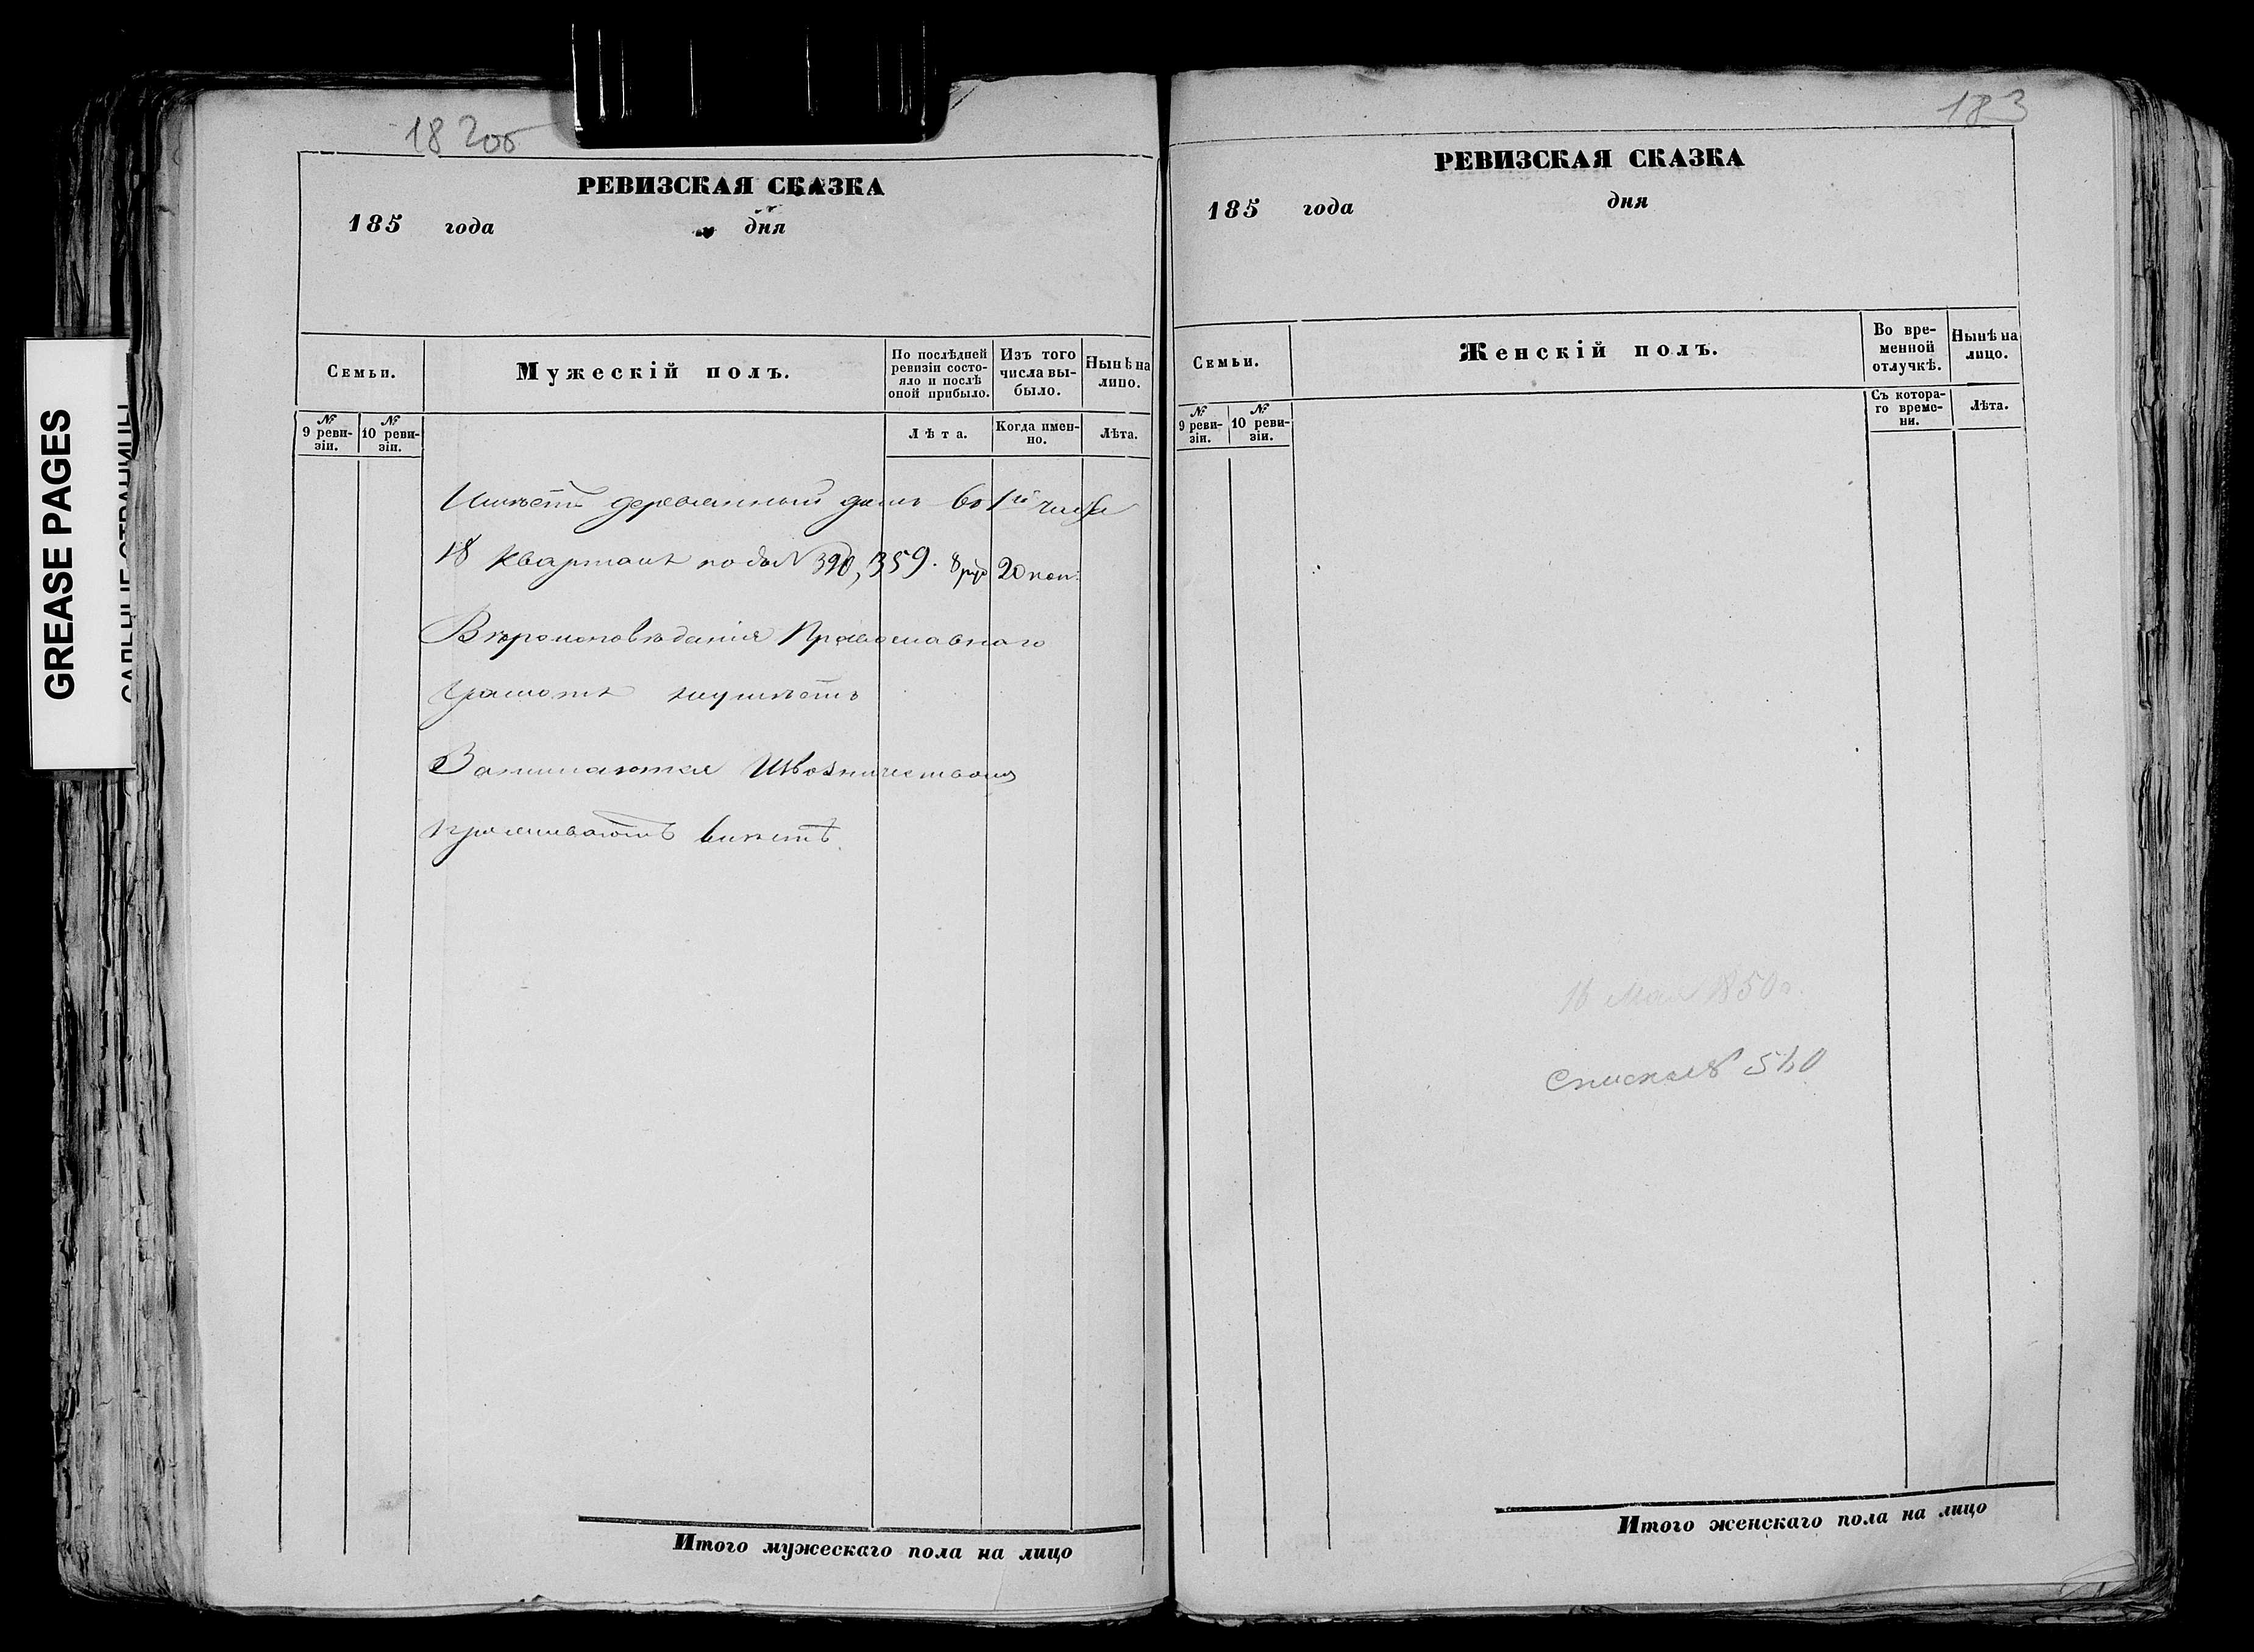 GREASE PAGES
САЛЬНЫЕ СТРАНИЦЫ
182об
РЕВИЗСКАЯ СКАЗКА
185 года дня
Семьи.
Мужескій полъ.
По послѣдней ревизіи состо-
яло и послѣ оной прибыло.
Изъ того числа вы-
было.
Нынѣ на лицо.
№ 9 реви-
зіи.
№ 10 реви-
зіи.
Лѣта.
Когда имен-
но.
Лѣта.
Имѣетъ деревянный домъ во 1й части
18 квартала подъ № 390, 359. 8 руб 20 коп.
Вѣроисповѣданія Православнаго
Грамотѣ неумѣетъ
Занимаются Извозничествомъ
проживаютъ вмѣстѣ.
Итого мужескаго пола на лицо
183
РЕВИЗСКАЯ СКАЗКА
185 года дня
Семьи.
Женскій полъ.
Во вре-
менной отлучкѣ.
Нынѣ на лицо.
№ 9 реви-
зіи.
№ 10 реви-
зіи.
Съ котора-
го време-
ни.
Лѣта.
16 Мая 1850 г.
Итого женскаго пола на лицо